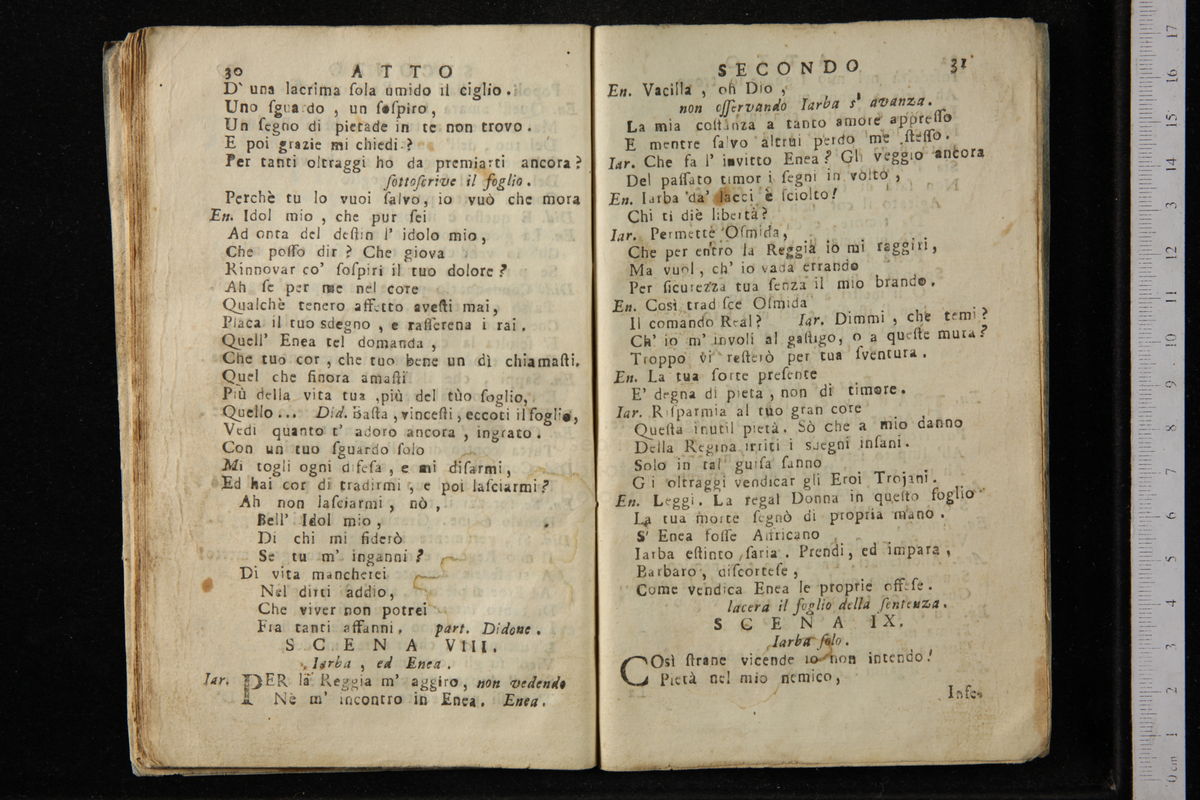 30 ATTO
D' una lacrima ſola umido il ciglio.
Uno ſguardo, un ſoſpiro,
Un ſegno di pietade in te non trovo.
E poi grazie mi chiedi?
Per tanti oltraggi ho da premiarti ancora?
ſottoſcrive il foglio.
Perchè tu lo vuoi ſalvo, io vuò che mora
En. Idol mio, che pur ſei
Ad onta del deſtin l' idolo mio,
Che poſſo dir? Che giova
Rinnovar co' ſoſpiri il tuo dolore?
Ah ſe per me nel core
Qualchè tenero affetto aveſti mai,
Placa il tuo sdegno, e raſſerena i rai.
Quell' Enea tel domanda,
Che tuo cor, che tuo bene un dì chiamaſti.
Quel che ſinora amaſti
Più della vita tua, più del tùo ſoglio,
Quello... Did. Baſta, vinceſti, eccoti il foglio,
Vedi quanto t' adoro ancora, ingrato.
Con un tuo ſguardo ſolo
Mi togli ogni difeſa, e mi diſarmi,
Ed hai cor di tradirmi, e poi laſciarmi?
Ah non laſciarmi, nò,
Bell' Idol mio,
Di chi mi fiderò
Se tu m' inganni?
Di vita mancherei
Nel dirti addio,
Che viver non potrei
Fra tanti affanni. part. Didone.
SCENA VIII.
Iarba, ed Enea.
Iar. PER la Reggia m' aggiro, non vedendo
Nè m' incontro in Enea. Enea.
SECONDO 31
En. Vacilla, oh Dio,
non oſſervando Iarba s' avanza.
La mia coſtanza a tanto amore appreſſo
E mentre ſalvo altrui perdo me ſteſſo.
Iar. Che fa l' invitto Enea? Gli veggio ancora
Del paſſato timor i ſegni in volto,
En. Iarba da' lacci è ſciolto!
Chi ti diè libertà?
Iar. Permette Oſmida,
Che per entro la Reggia io mi raggiri,
Ma vuol, ch' io vada errando
Per ſicurezza tua ſenza il mio brando.
En. Così tradiſce Oſmida
Il comando Real? Iar. Dimmi, che temi?
Ch' io m' involi al gaſtigo, o a queſte mura?
Troppo vi reſterò per tua ſventura.
En. La tua ſorte preſente
E' degna di pietà, non di timore.
Iar. Riſparmia al tuo gran core
Queſta inutil pietà. Sò che a mio danno
Della Regina irriti i sdegni inſani.
Solo in tal guiſa ſanno
Gli oltraggi vendicar gli Eroi Trojani.
En. Leggi. La regal Donna in queſto foglio
La tua morte ſegnò di propria mano.
S' Enea foſſe Affricano
Iarba eſtinto ſaria. Prendi, ed impara,
Barbaro, diſcorteſe,
Come vendica Enea le proprie offeſe.
lacera il foglio della ſentenza.
SCENA IX.
Iarba ſolo.
COsì ſtrane vicende io non intendo!
Pietà nel mio nemico,
Infe-